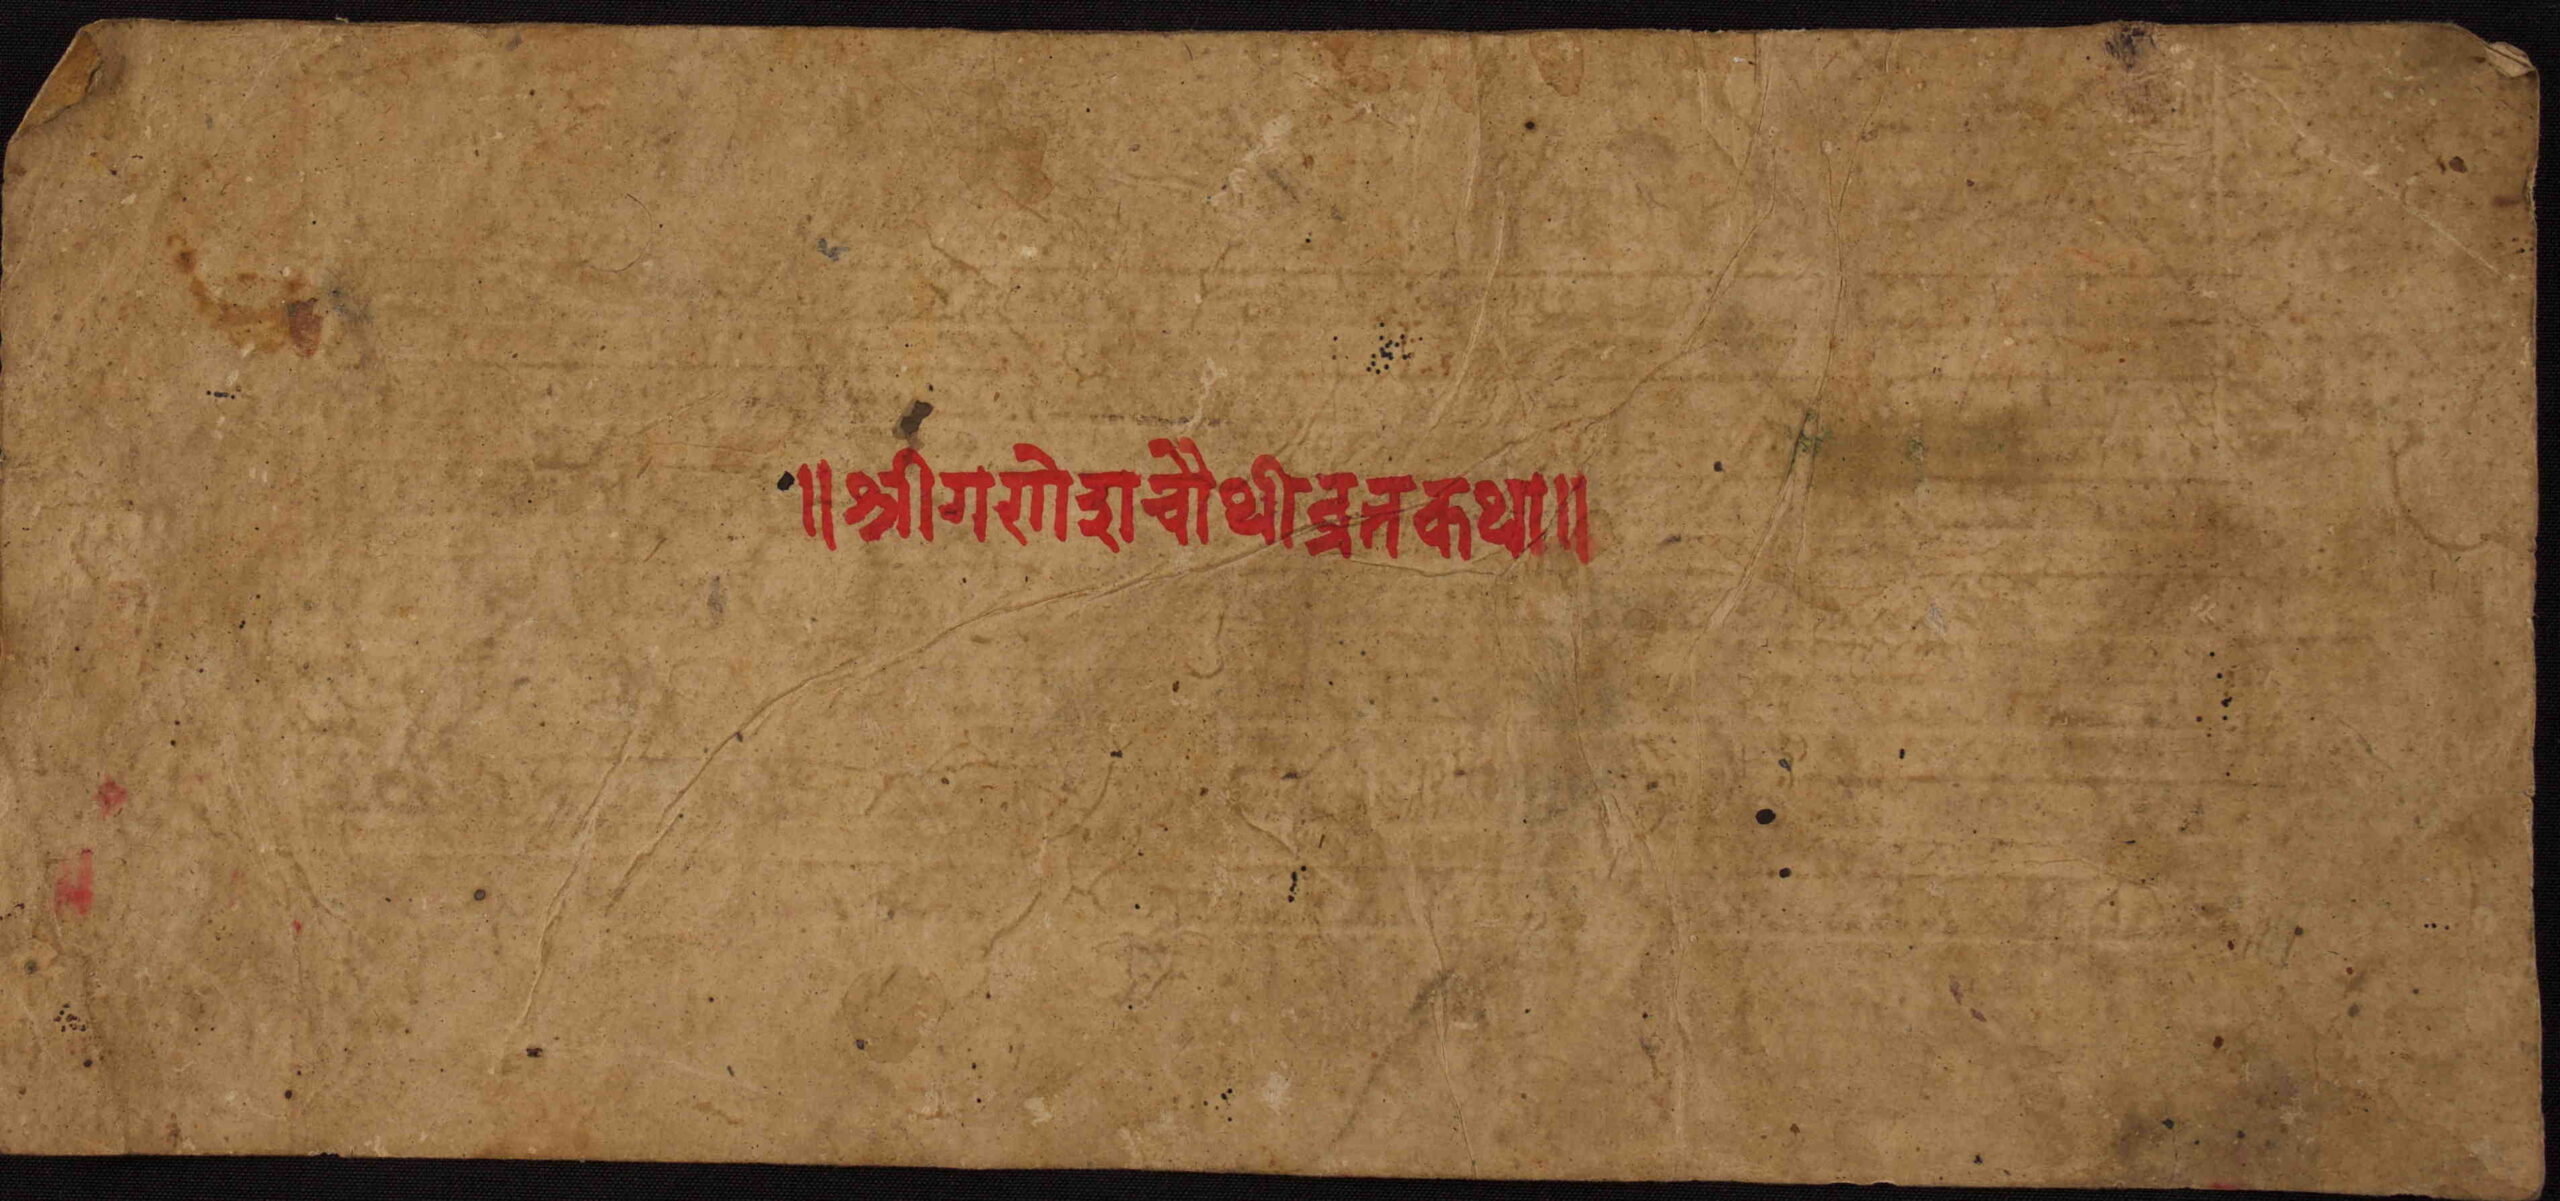 ॥श्रीगणेशचौथीव्रतकथा॥